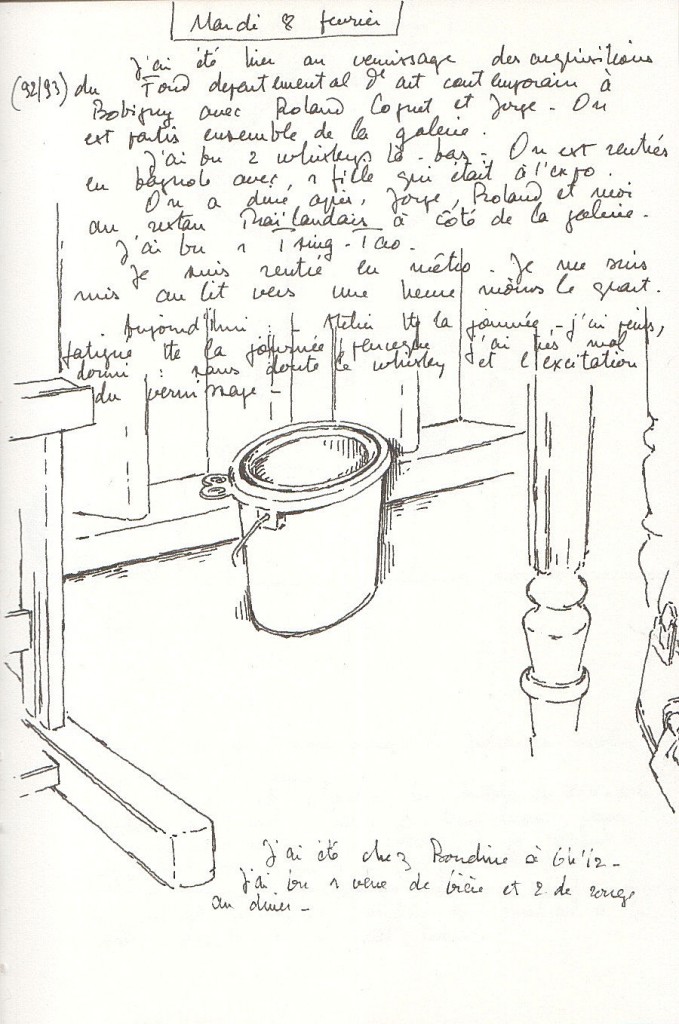 Mardi 8 février
J'ai été hier au vernissage des acquisitions
(92/93) du Fond departemental d'art contemporain à
Bobigny avec Roland Cognet et Jorge - On
est partis ensemble de la galerie.
J'ai bu 2 whiskys là-bas - On est rentrés
en bagnole avec 1 fille qui était à l'expo.
On a diné après, Jorge, Roland et moi
au restau Thaïlandais à côté de la galerie.
J'ai bu 1 Tsing-Tao.
Je suis rentré en métro. Je me suis
mis au lit vers une heure moins le quart.
Aujourd'hui - Atelier tte la journée - j'ai
fatigué tte la journée j'ai très mal
dormi : sans doute le whisky et l'excitation
du vernissage -
J'ai été chez à 6h12 -
J'ai bu 1 verre de bière et 2 de rouge
au diner -